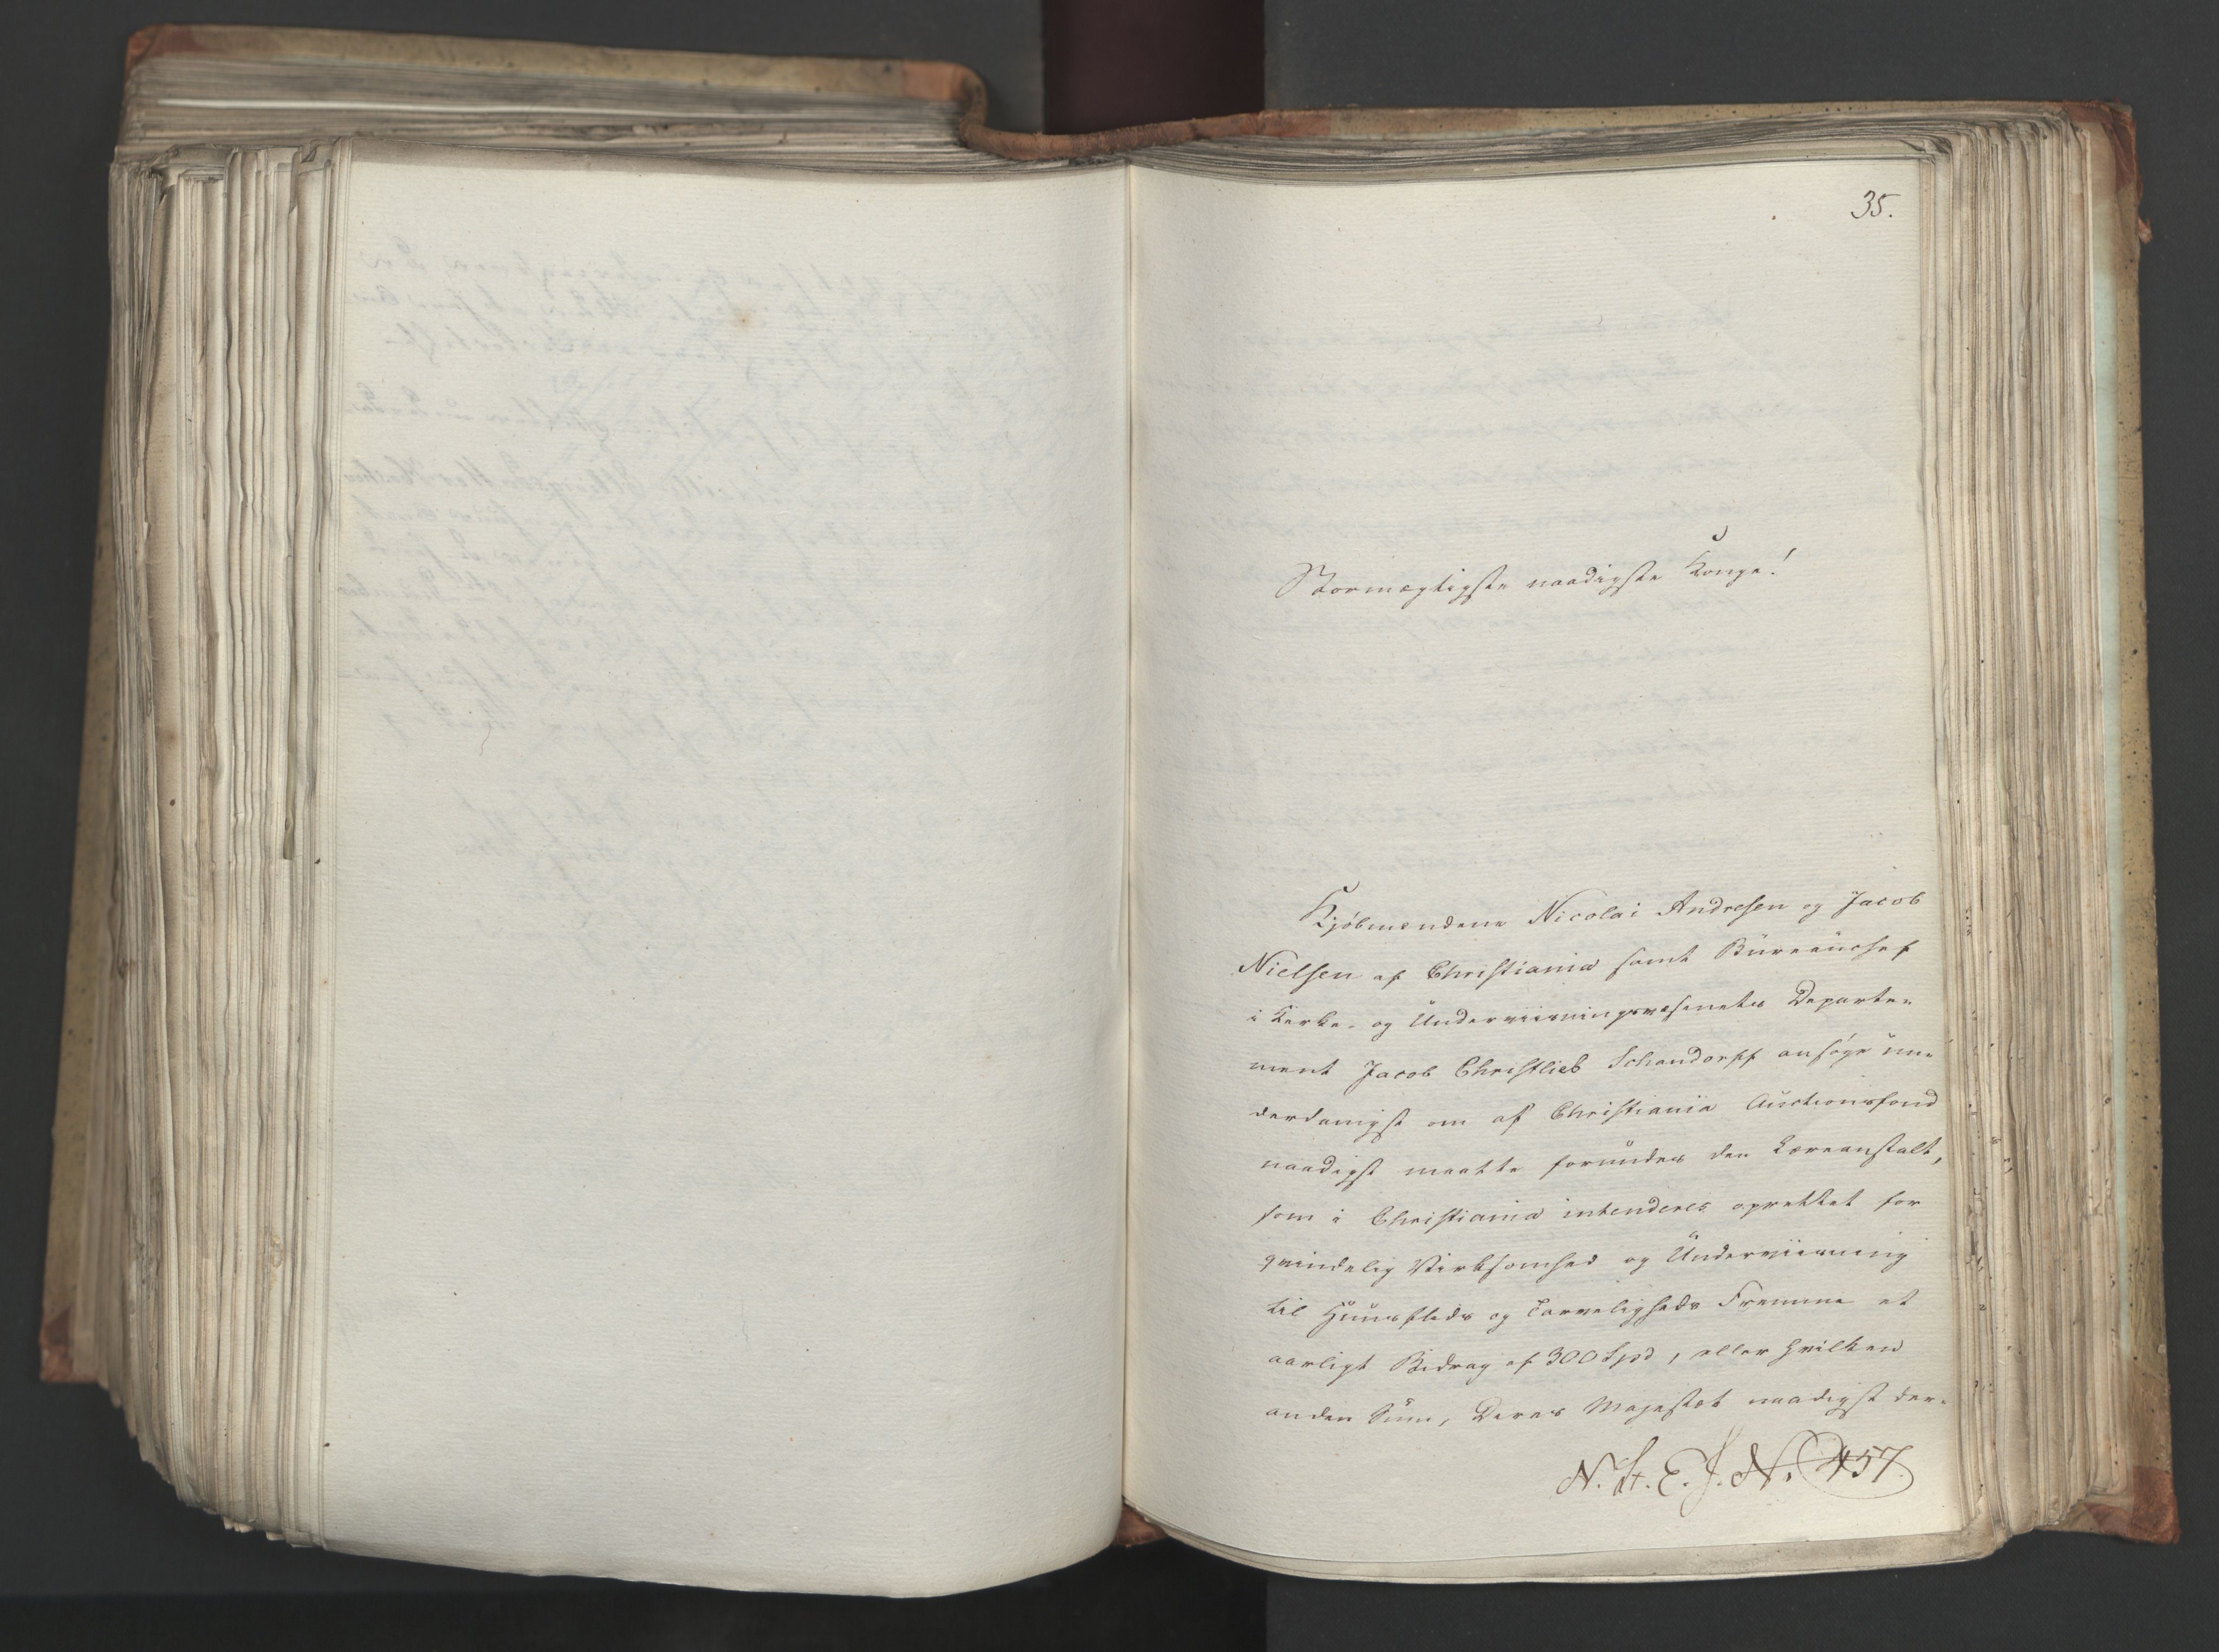 35.
Stormægtigste naadigste Konge!
Kjøbmændene Nicolai Andresen og Jacob
Nielsen af Christiania samt Büreauchef
i Kirke- og Underviisningsvæsenets Departe-
ment Jacob Christlieb Schandorff ansøge un-
derdanigst om af Christiania Auctionsfond
naadigst maatte forundes den Læreanstalt,
som i Christiania intenderes oprettet for
qvindelig Virksomhed og Underviisning
til Huusflids og Tarveligheds Fremme et
aarligt Bidrag af 300 Spd, eller hvilken
anden Sum, Deres Majestæt naadigst der-
N. St. E. J. N. 457.